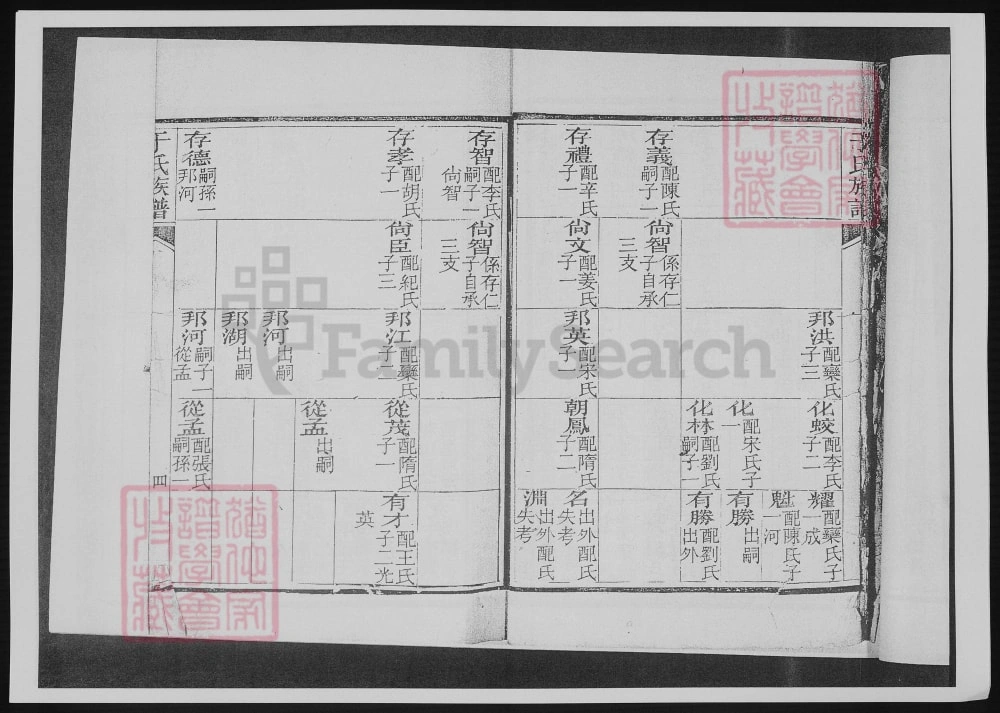 于氏族譜
邦洪 配欒氏 子三
化蛟 配李氏 子二
耀 配欒氏 子一 成
魁 配陳氏 子一 河
化 配宋氏 子一
有勝 出嗣
化林 配劉氏 嗣子一
有勝 配劉氏 出外
存義 配陳氏 嗣子一
尙智 係存仁子自承三支
存禮 配辛氏 子一
尙文 配姜氏 子一
邦英 配宋氏 子一
朝鳳 配隋氏 子二
名 出外配氏失考
淵 出外配氏失考
存智 配李氏 嗣子一 尙智
尙智 係存仁子自承三支
存孝 配胡氏 子一
尙臣 配紀氏 子三
邦江 配欒氏 子二
從茂 配隋氏 子一
有才 配王氏 子二 光 英
從孟 出嗣
邦河 出嗣
邦湖 出嗣
存德 嗣孫一 邦河
邦河 嗣子一 從孟
從孟 配張氏 嗣孫一
于氏族譜
四
FamilySearch